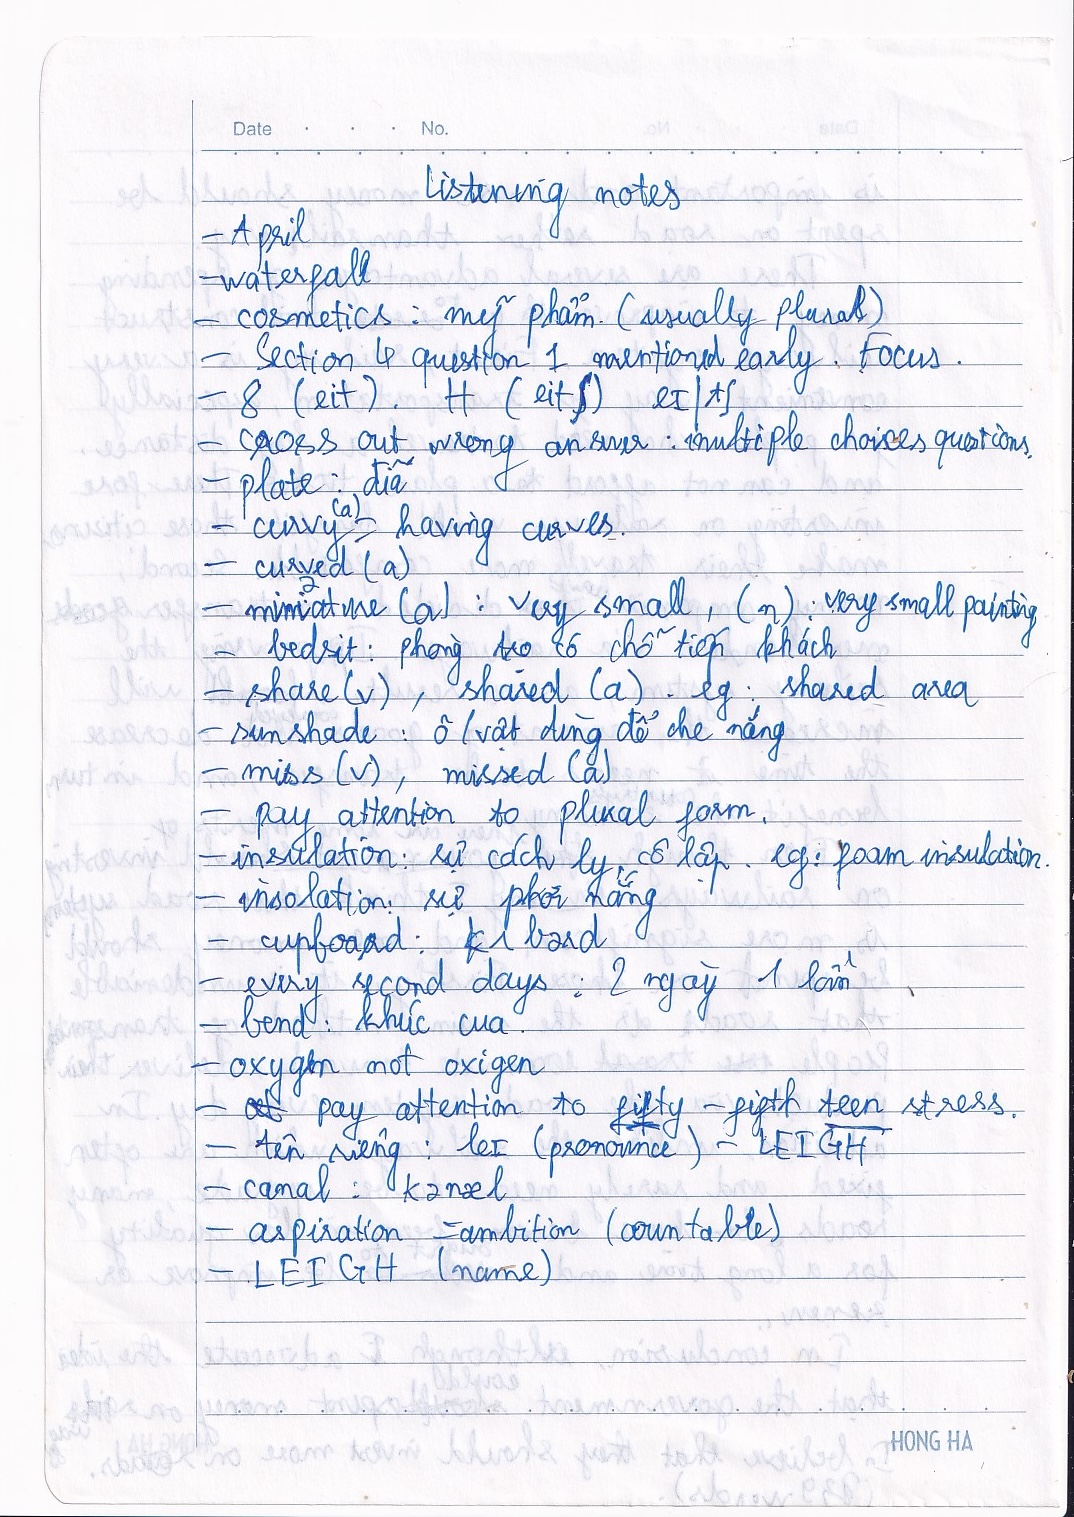 Date . . . No.
Listening notes
- April
- waterfall
- cosmetics : mỹ phẩm. (usually plural)
- Section 4 question 1 mentioned early. Focus.
- 8 (eit). H (eitʃ) eI|tʃ
- cross out wrong answer : multiple choices questions.
- plate : đĩa
- curvy (a) = having curves.
- curved (a)
- miniature (a) : very small, (n) : very small painting
- bedsit : phòng trọ có chỗ tiếp khách
- share (v), shared (a). eg : shared area
- sunshade : ô / vật dùng để che nắng
- miss (v), missed (a)
- pay attention to plural form.
- insulation : sự cách ly, cô lập. eg : foam insulation.
- insolation : sự phơi nắng
- cupboard :
- every second days : 2 ngày 1 lần
- bend : khúc cua.
- oxygen not oxigen
- pay attention to fifty - fifth teen stress.
- tên riêng : leI (pronounce) - LEIGH
- canal : kənæl
- aspiration = ambition (countable)
- LEIGH (name)
HONG HA